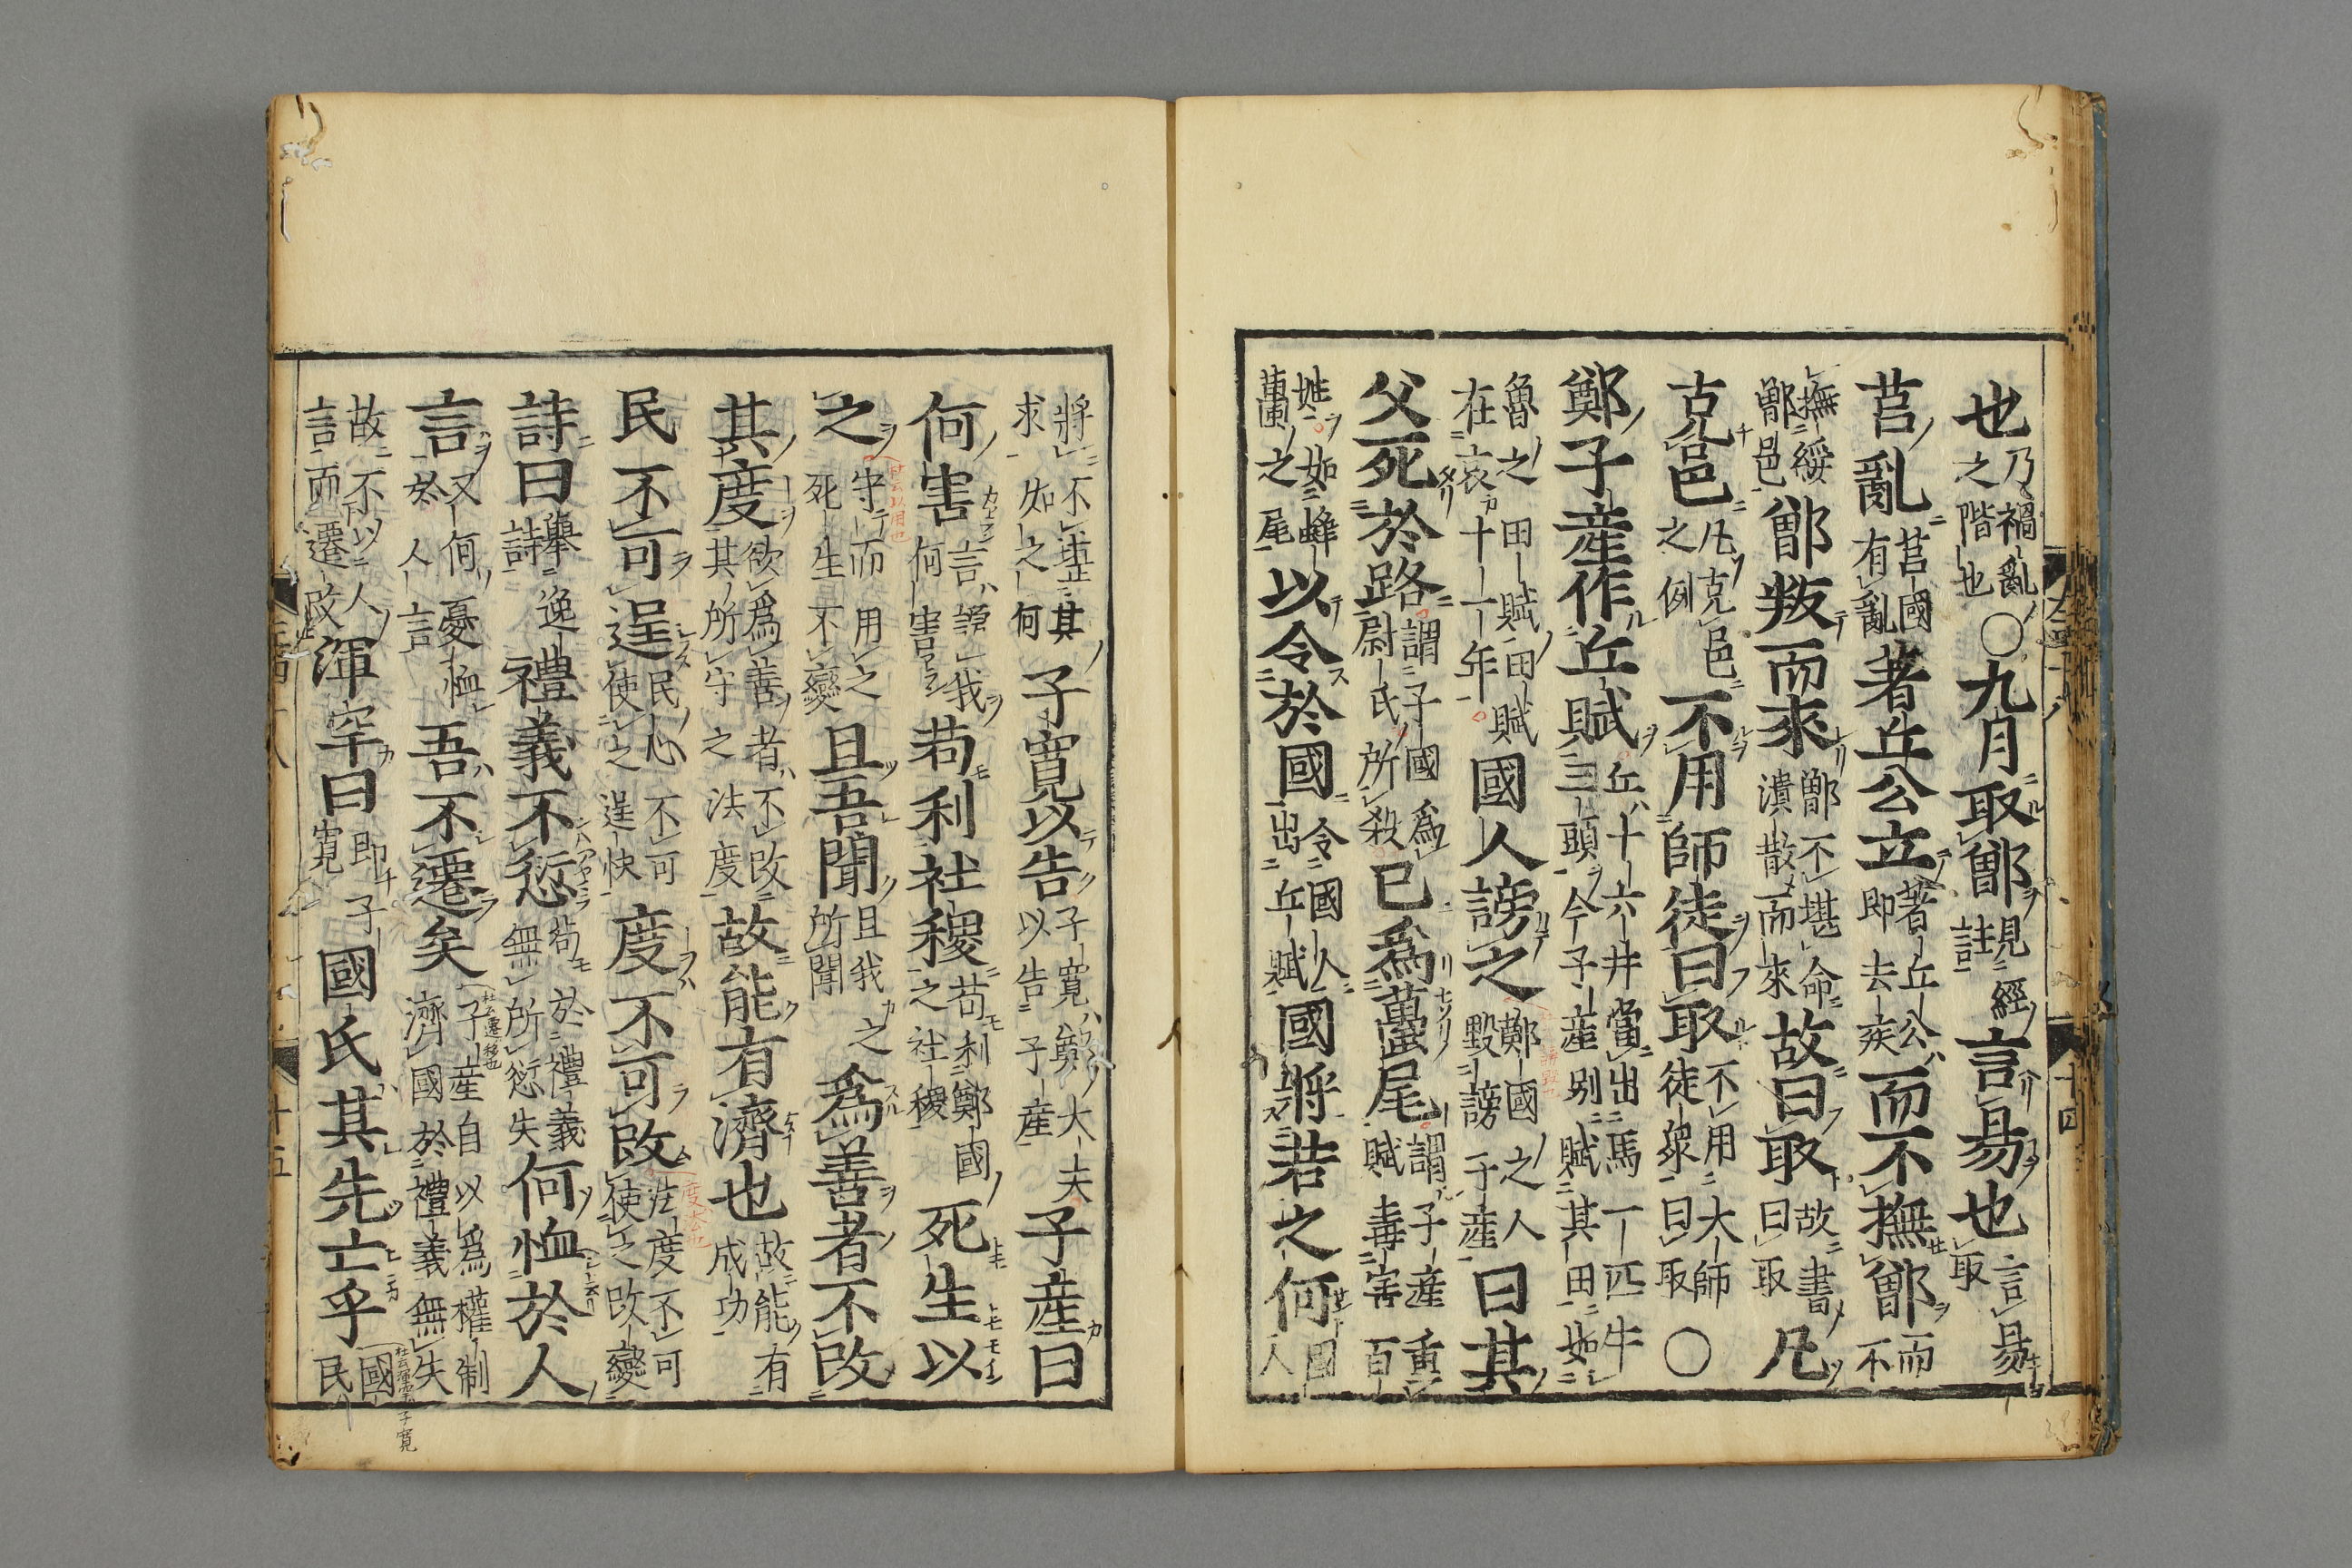 也乃禍亂之階也○九月取鄫見經註言易也言易取
莒亂莒國有亂著丘公立著丘公即去疾而不撫鄫而不
撫綏鄫邑鄫叛而來鄫不堪命潰散而來故曰取故書曰取凡
克邑凡克邑之例不用師徒曰取不用大師徒衆曰取○
鄭子產作丘賦丘十六井當出馬一匹牛三頭今子產別賦其田如
魯之田賦田賦在哀十一年國人謗之鄭國之人毀謗子產曰其
父死於路謂子國為尉氏所殺已為蠆尾謂子產重賦毒害百
姓如蜂蠆之尾以令於國令國人出丘賦國將若之何國人
將不堪其求如之何子寬以告子寬鄭大夫以告子產子產曰
何害言謗我何害苟利社稷苟利鄭國之社稷死生以
之守而用之死生不變且吾聞且我之所聞為善者不改
其度欲為善者不改其所守之法度故能有濟也故能有成功
民不可逞民心不可使之逞快度不可改法度不可使之改變
詩曰舉逸詩禮義不愆苟於禮義無所愆失何恤於人
言又何憂恤於人言吾不遷矣子產自以為權制濟國於禮義無失
故不以人言而遷改渾罕曰即子寬國氏其先亡乎國民